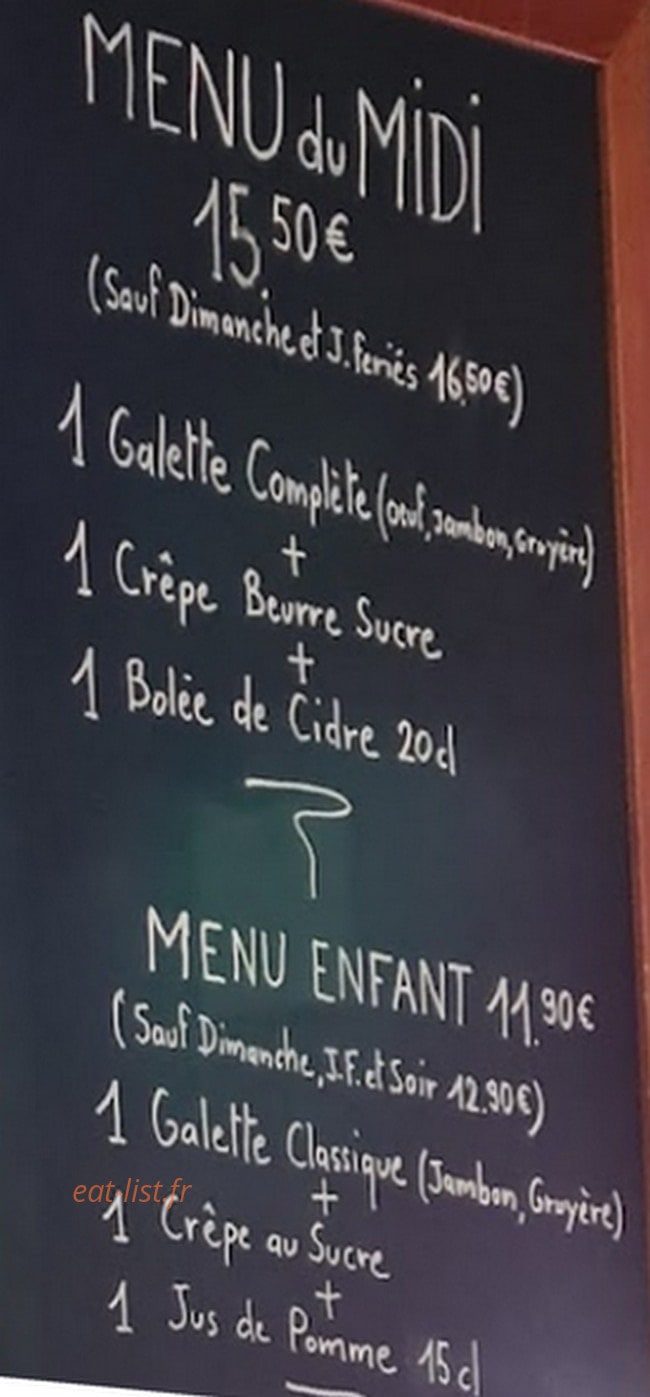 MENU du MiDi
15,50€
(Sauf Dimanche et J. feriés 16,50€)
1 Galette Complète (oeuf, Jambon, Gruyère)
+
1 Crêpe Beurre Sucre
+
1 Bolée de Cidre 20cl
MENU ENFANT 11,90€
(Sauf Dimanche, J.F. et Soir 12.90€)
1 Galette Classique (Jambon, Gruyère)
eat-list.fr
+
1 Crêpe au Sucre
+
1 Jus de Pomme 15cl